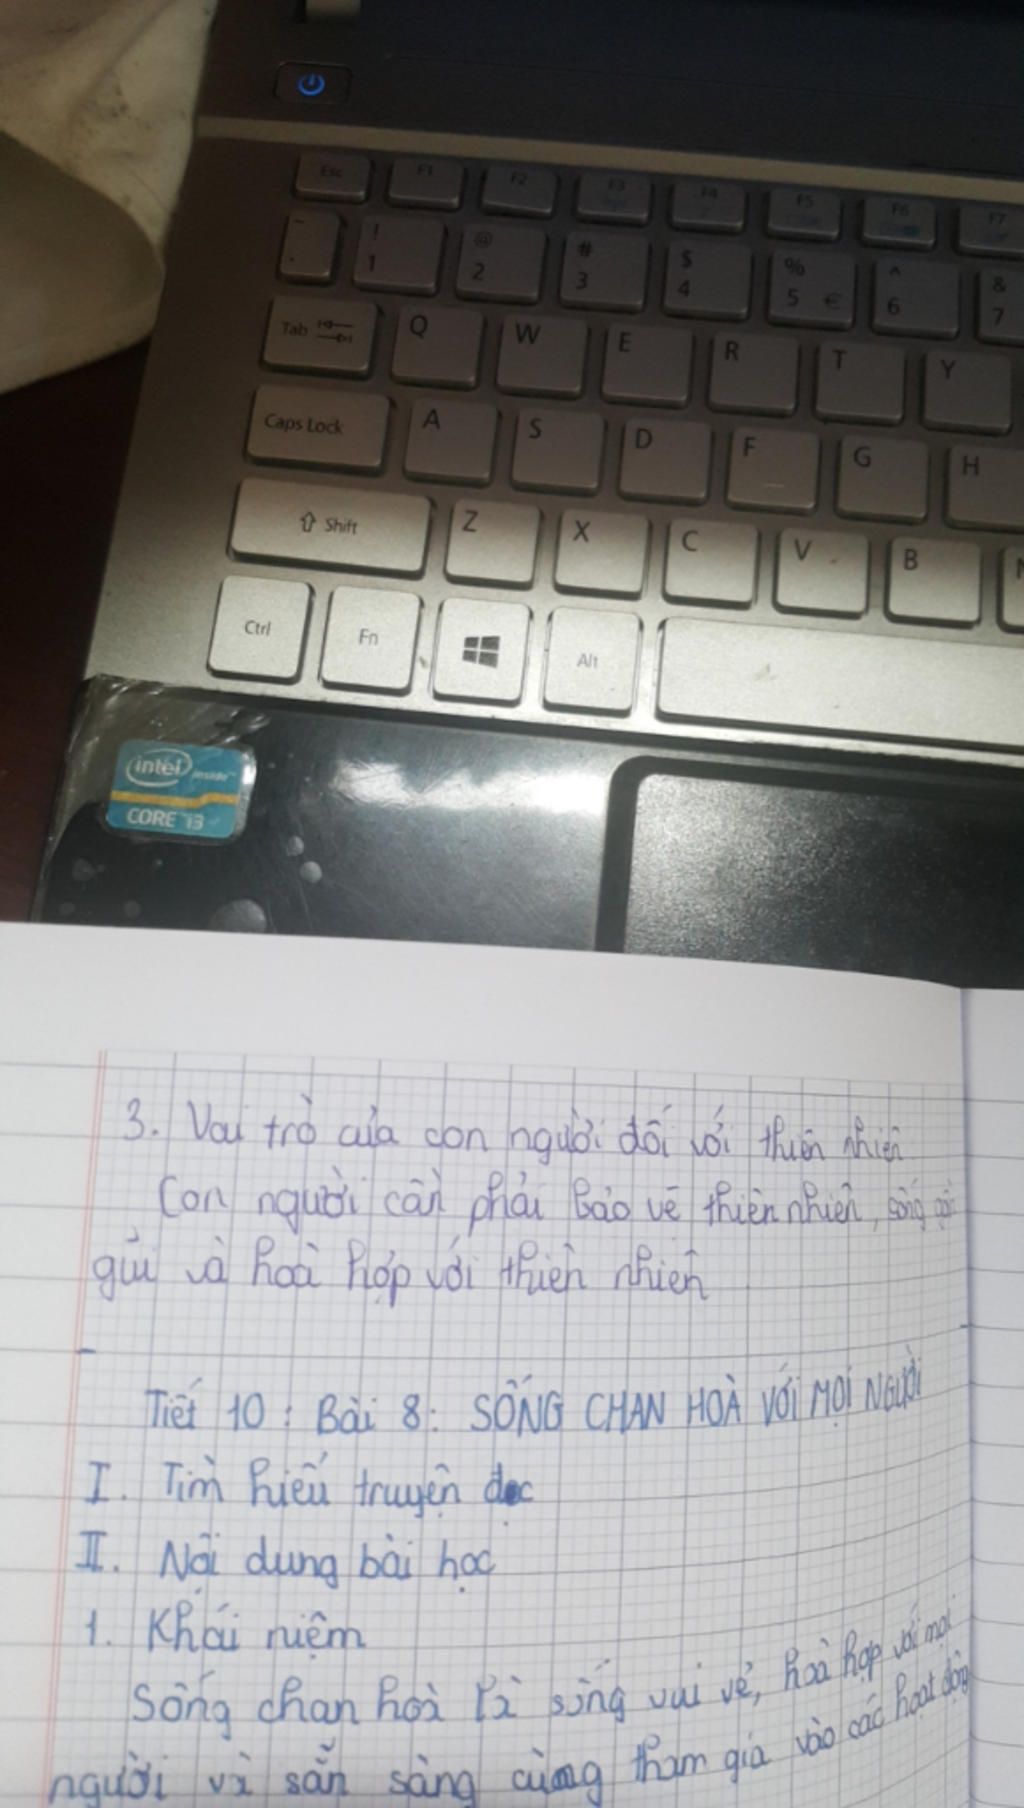 Esc F1 F2 F3 F4 F5 F6 F7
! 1 @ 2 # 3 $ 4 % 5 € ^ 6 & 7
Tab Q W E R T Y
Caps Lock A S D F G H
Shift Z X C V B N
Ctrl Fn Alt
intel inside™
CORE i3
3. Vai trò của con người đối với thiên nhiên
Con người cần phải bảo vệ thiên nhiên, sống gần
gũi và hoà hợp với thiên nhiên
Tiết 10: Bài 8: SỐNG CHAN HOÀ VỚI MỌI NGƯỜI
I. Tìm hiểu truyện đọc
II. Nội dung bài học
1. Khái niệm
Sống chan hoà là sống vui vẻ, hoà hợp với mọi
người và sẵn sàng cùng tham gia vào các hoạt động